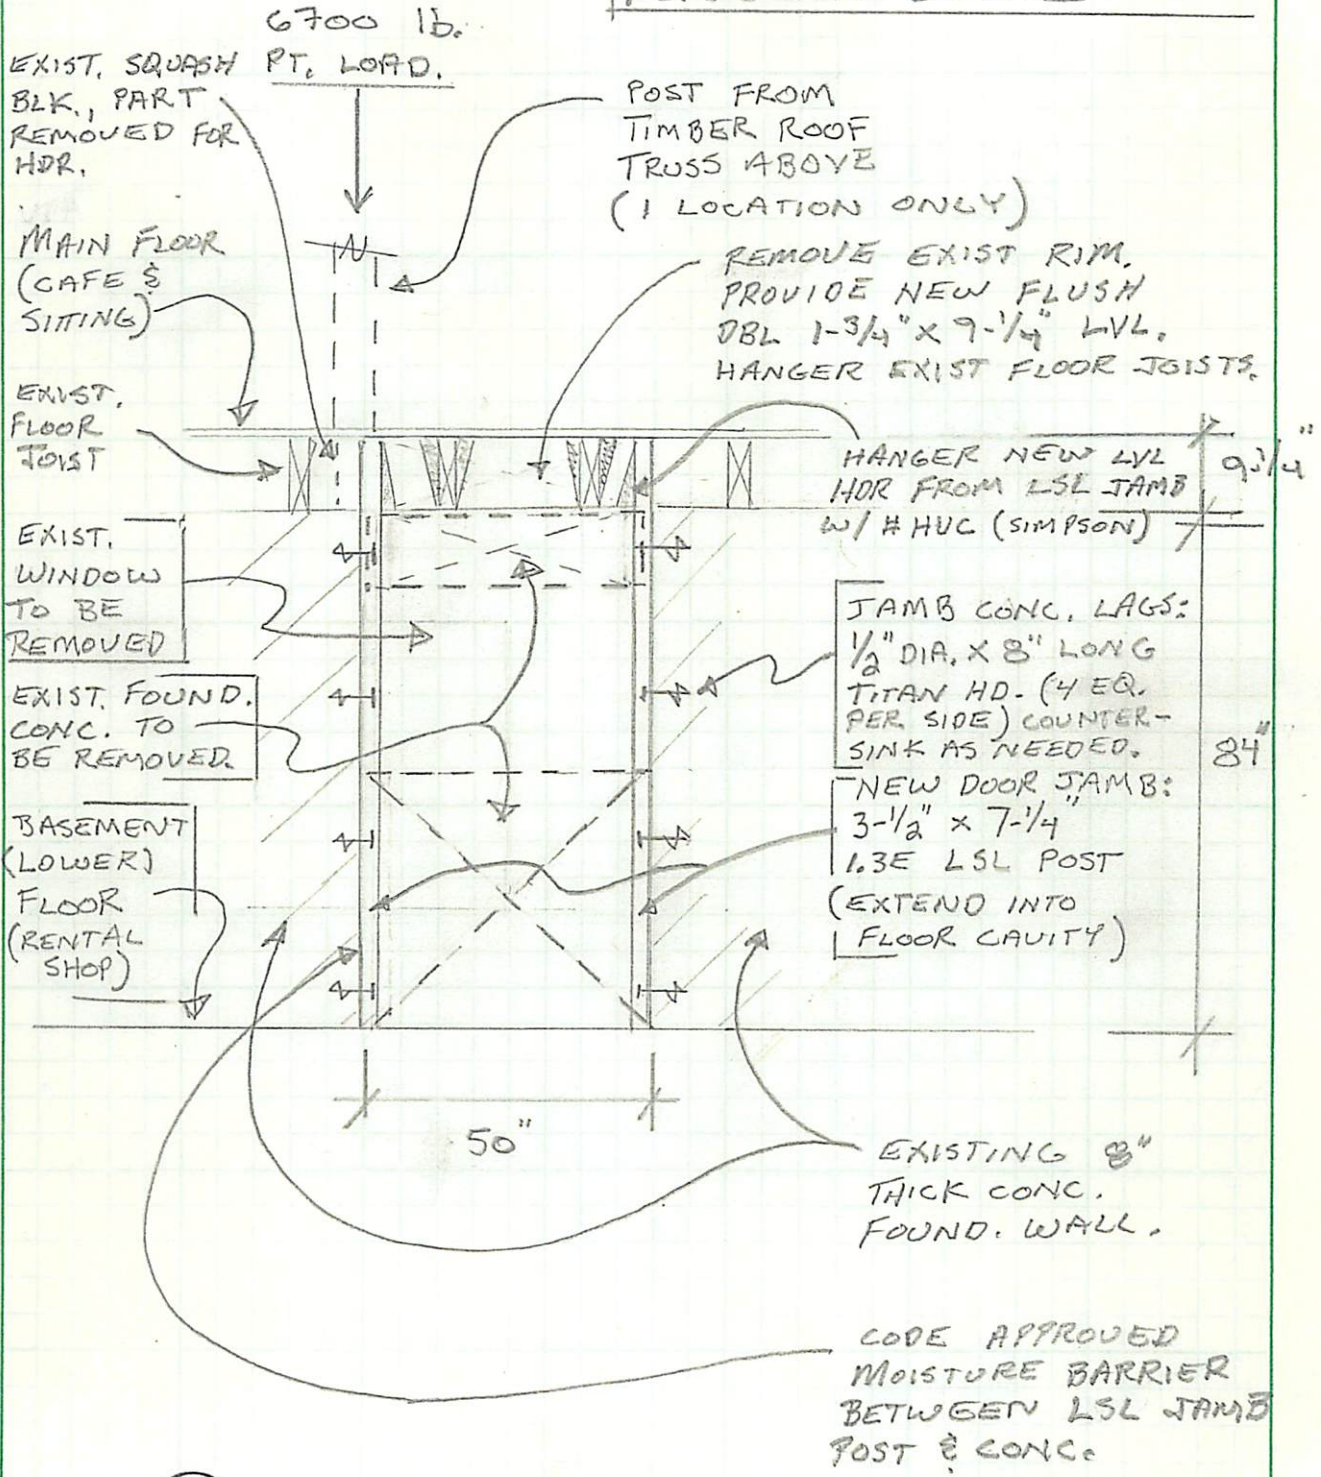 6700 lb.
PT. LOAD.
EXIST. SQUASH
BLK., PART
REMOVED FOR
HDR.
POST FROM
TIMBER ROOF
TRUSS ABOVE
(1 LOCATION ONLY)
MAIN FLOOR
(CAFE &
SITTING)
REMOVE EXIST RIM.
PROVIDE NEW FLUSH
DBL 1-3/4" X 9-1/4" LVL.
HANGER EXIST FLOOR JOISTS.
EXIST.
FLOOR
JOIST
HANGER NEW LVL
HDR FROM LSL JAMB
W/ # HUC (SIMPSON)
9 1/4"
EXIST.
WINDOW
TO BE
REMOVED
JAMB CONC. LAGS:
1/2" DIA. X 8" LONG
TITAN HD. (4 EQ.
PER SIDE) COUNTER-
SINK AS NEEDED.
84"
EXIST. FOUND.
CONC. TO
BE REMOVED.
NEW DOOR JAMB:
3-1/2" X 7-1/4"
1.3E LSL POST
(EXTEND INTO
FLOOR CAVITY)
BASEMENT
(LOWER)
FLOOR
(RENTAL
SHOP)
50"
EXISTING 8"
THICK CONC.
FOUND. WALL.
CODE APPROVED
MOISTURE BARRIER
BETWEEN LSL JAMB
POST & CONC.